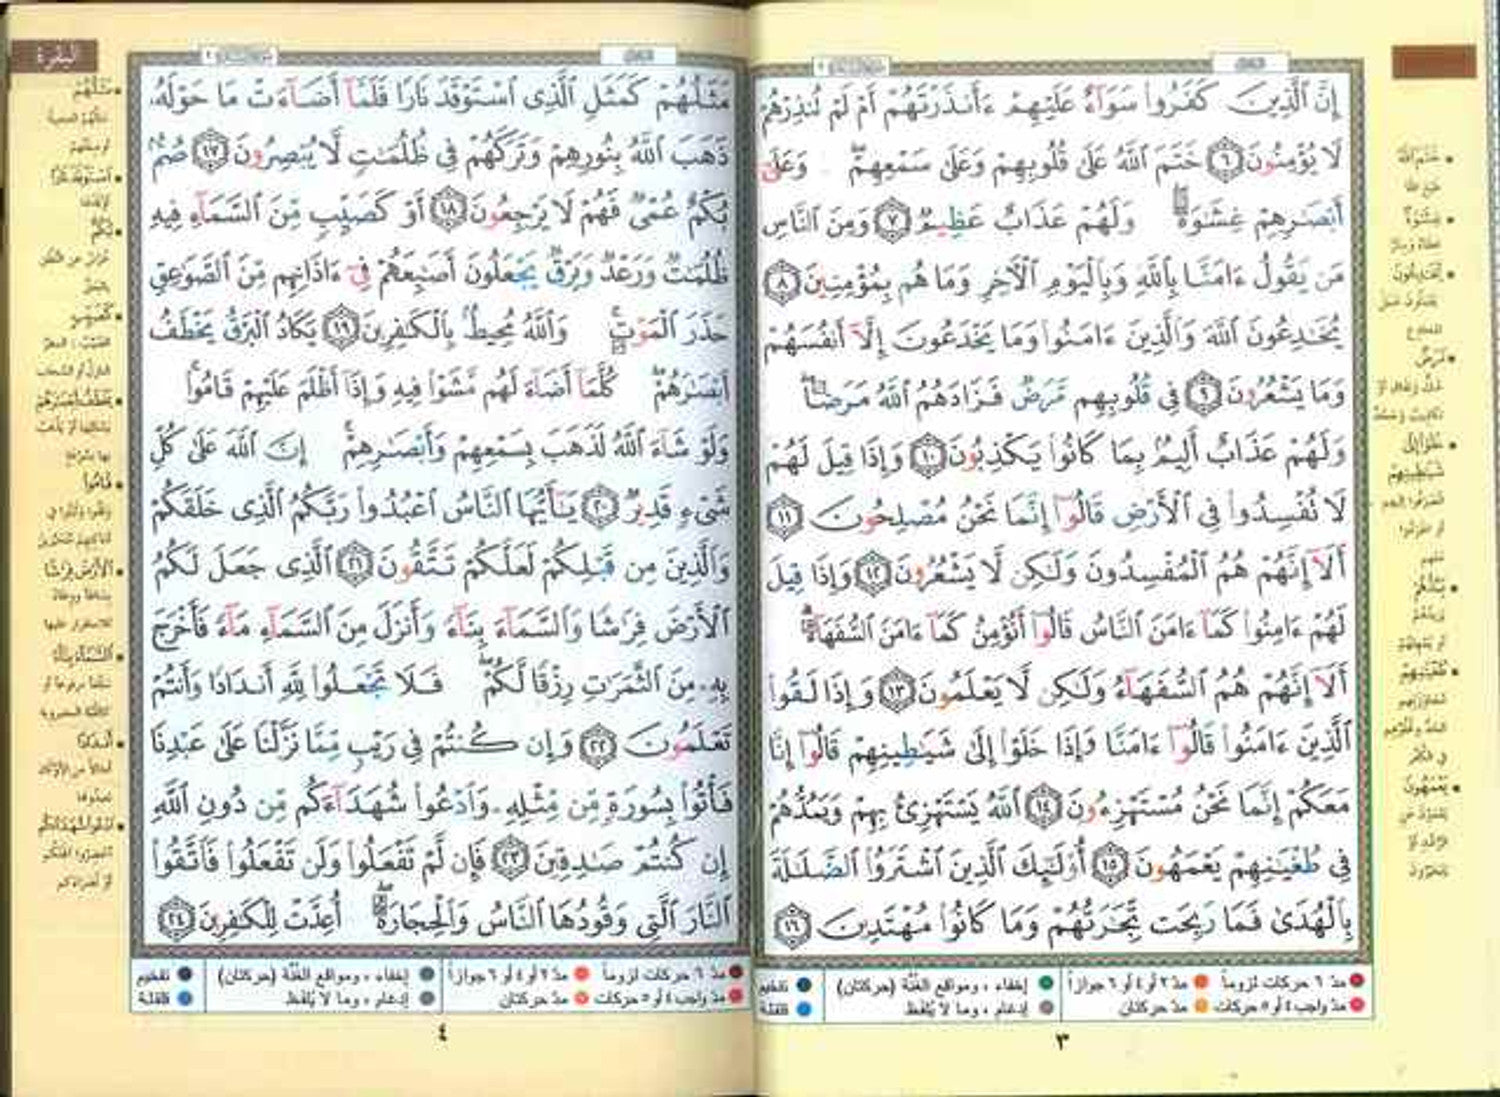 إِنَّ ٱلَّذِينَ كَفَرُوا۟ سَوَآءٌ عَلَيْهِمْ ءَأَنذَرْتَهُمْ أَمْ لَمْ تُنذِرْهُمْ
لَا يُؤْمِنُونَ ٦ خَتَمَ ٱللَّهُ عَلَىٰ قُلُوبِهِمْ وَعَلَىٰ سَمْعِهِمْ ۖ وَعَلَىٰٓ
أَبْصَٰرِهِمْ غِشَٰوَةٌ ۖ وَلَهُمْ عَذَابٌ عَظِيمٌ ٧ وَمِنَ ٱلنَّاسِ
مَن يَقُولُ ءَامَنَّا بِٱللَّهِ وَبِٱلْيَوْمِ ٱلْءَاخِرِ وَمَا هُم بِمُؤْمِنِينَ ٨
يُخَٰدِعُونَ ٱللَّهَ وَٱلَّذِينَ ءَامَنُوا۟ وَمَا يَخْدَعُونَ إِلَّآ أَنفُسَهُمْ
وَمَا يَشْعُرُونَ ٩ فِى قُلُوبِهِم مَّرَضٌ فَزَادَهُمُ ٱللَّهُ مَرَضًا ۖ
وَلَهُمْ عَذَابٌ أَلِيمٌۢ بِمَا كَانُوا۟ يَكْذِبُونَ ١٠ وَإِذَا قِيلَ لَهُمْ
لَا تُفْسِدُوا۟ فِى ٱلْأَرْضِ قَالُوٓا۟ إِنَّمَا نَحْنُ مُصْلِحُونَ ١١
أَلَآ إِنَّهُمْ هُمُ ٱلْمُفْسِدُونَ وَلَٰكِن لَّا يَشْعُرُونَ ١٢ وَإِذَا قِيلَ
لَهُمْ ءَامِنُوا۟ كَمَآ ءَامَنَ ٱلنَّاسُ قَالُوٓا۟ أَنُؤْمِنُ كَمَآ ءَامَنَ ٱلسُّفَهَآءُ ۗ
أَلَآ إِنَّهُمْ هُمُ ٱلسُّفَهَآءُ وَلَٰكِن لَّا يَعْلَمُونَ ١٣ وَإِذَا لَقُوا۟
ٱلَّذِينَ ءَامَنُوا۟ قَالُوٓا۟ ءَامَنَّا وَإِذَا خَلَوْا۟ إِلَىٰ شَيَٰطِينِهِمْ قَالُوٓا۟ إِنَّا
مَعَكُمْ إِنَّمَا نَحْنُ مُسْتَهْزِءُونَ ١٤ ٱللَّهُ يَسْتَهْزِئُ بِهِمْ وَيَمُدُّهُمْ
فِى طُغْيَٰنِهِمْ يَعْمَهُونَ ١٥ أُو۟لَٰٓئِكَ ٱلَّذِينَ ٱشْتَرَوُا۟ ٱلضَّلَٰلَةَ
بِٱلْهُدَىٰ فَمَا رَبِحَت تِّجَٰرَتُهُمْ وَمَا كَانُوا۟ مُهْتَدِينَ ١٦
خَتَمَ ٱللَّهُ
غِشَٰوَةٌ
يُخَٰدِعُونَ
مَرَضٌ
شَيَٰطِينِهِمْ
يَمُدُّهُمْ
طُغْيَٰنِهِمْ
يَعْمَهُونَ
مدّ ٦ حركات لزوماً مدّ ٢ أو ٤ أو ٦ جوازاً إخفاء ، ومواقع الغُنَّة (حركتان) تفخيم
مدّ واجب ٤ أو ٥ حركات مدّ حركتان إدغام ، وما لا يُلفَظ قلقلة
٣
البقرة
مَثَلُهُمْ كَمَثَلِ ٱلَّذِى ٱسْتَوْقَدَ نَارًا فَلَمَّآ أَضَآءَتْ مَا حَوْلَهُۥ
ذَهَبَ ٱللَّهُ بِنُورِهِمْ وَتَرَكَهُمْ فِى ظُلُمَٰتٍ لَّا يُبْصِرُونَ ١٧ صُمٌّۢ
بُكْمٌ عُمْىٌ فَهُمْ لَا يَرْجِعُونَ ١٨ أَوْ كَصَيِّبٍ مِّنَ ٱلسَّمَآءِ فِيهِ
ظُلُمَٰتٌ وَرَعْدٌ وَبَرْقٌ يَجْعَلُونَ أَصَٰبِعَهُمْ فِىٓ ءَاذَانِهِم مِّنَ ٱلصَّوَٰعِقِ
حَذَرَ ٱلْمَوْتِ ۚ وَٱللَّهُ مُحِيطٌۢ بِٱلْكَٰفِرِينَ ١٩ يَكَادُ ٱلْبَرْقُ يَخْطَفُ
أَبْصَٰرَهُمْ ۖ كُلَّمَآ أَضَآءَ لَهُم مَّشَوْا۟ فِيهِ وَإِذَآ أَظْلَمَ عَلَيْهِمْ قَامُوا۟ ۚ
وَلَوْ شَآءَ ٱللَّهُ لَذَهَبَ بِسَمْعِهِمْ وَأَبْصَٰرِهِمْ ۚ إِنَّ ٱللَّهَ عَلَىٰ كُلِّ
شَىْءٍ قَدِيرٌ ٢٠ يَٰٓأَيُّهَا ٱلنَّاسُ ٱعْبُدُوا۟ رَبَّكُمُ ٱلَّذِى خَلَقَكُمْ
وَٱلَّذِينَ مِن قَبْلِكُمْ لَعَلَّكُمْ تَتَّقُونَ ٢١ ٱلَّذِى جَعَلَ لَكُمُ
ٱلْأَرْضَ فِرَٰشًا وَٱلسَّمَآءَ بِنَآءً وَأَنزَلَ مِنَ ٱلسَّمَآءِ مَآءً فَأَخْرَجَ
بِهِۦ مِنَ ٱلثَّمَرَٰتِ رِزْقًا لَّكُمْ ۖ فَلَا تَجْعَلُوا۟ لِلَّهِ أَندَادًا وَأَنتُمْ
تَعْلَمُونَ ٢٢ وَإِن كُنتُمْ فِى رَيْبٍ مِّمَّا نَزَّلْنَا عَلَىٰ عَبْدِنَا
فَأْتُوا۟ بِسُورَةٍ مِّن مِّثْلِهِۦ وَٱدْعُوا۟ شُهَدَآءَكُم مِّن دُونِ ٱللَّهِ
إِن كُنتُمْ صَٰدِقِينَ ٢٣ فَإِن لَّمْ تَفْعَلُوا۟ وَلَن تَفْعَلُوا۟ فَٱتَّقُوا۟
ٱلنَّارَ ٱلَّتِى وَقُودُهَا ٱلنَّاسُ وَٱلْحِجَارَةُ ۖ أُعِدَّتْ لِلْكَٰفِرِينَ ٢٤
مَثَلُهُمْ
بُكْمٌ
كَصَيِّبٍ
قَامُوا۟
ٱلْأَرْضَ فِرَٰشًا
أَندَادًا
مدّ ٦ حركات لزوماً مدّ ٢ أو ٤ أو ٦ جوازاً إخفاء ، ومواقع الغُنَّة (حركتان) تفخيم
مدّ واجب ٤ أو ٥ حركات مدّ حركتان إدغام ، وما لا يُلفَظ قلقلة
٤